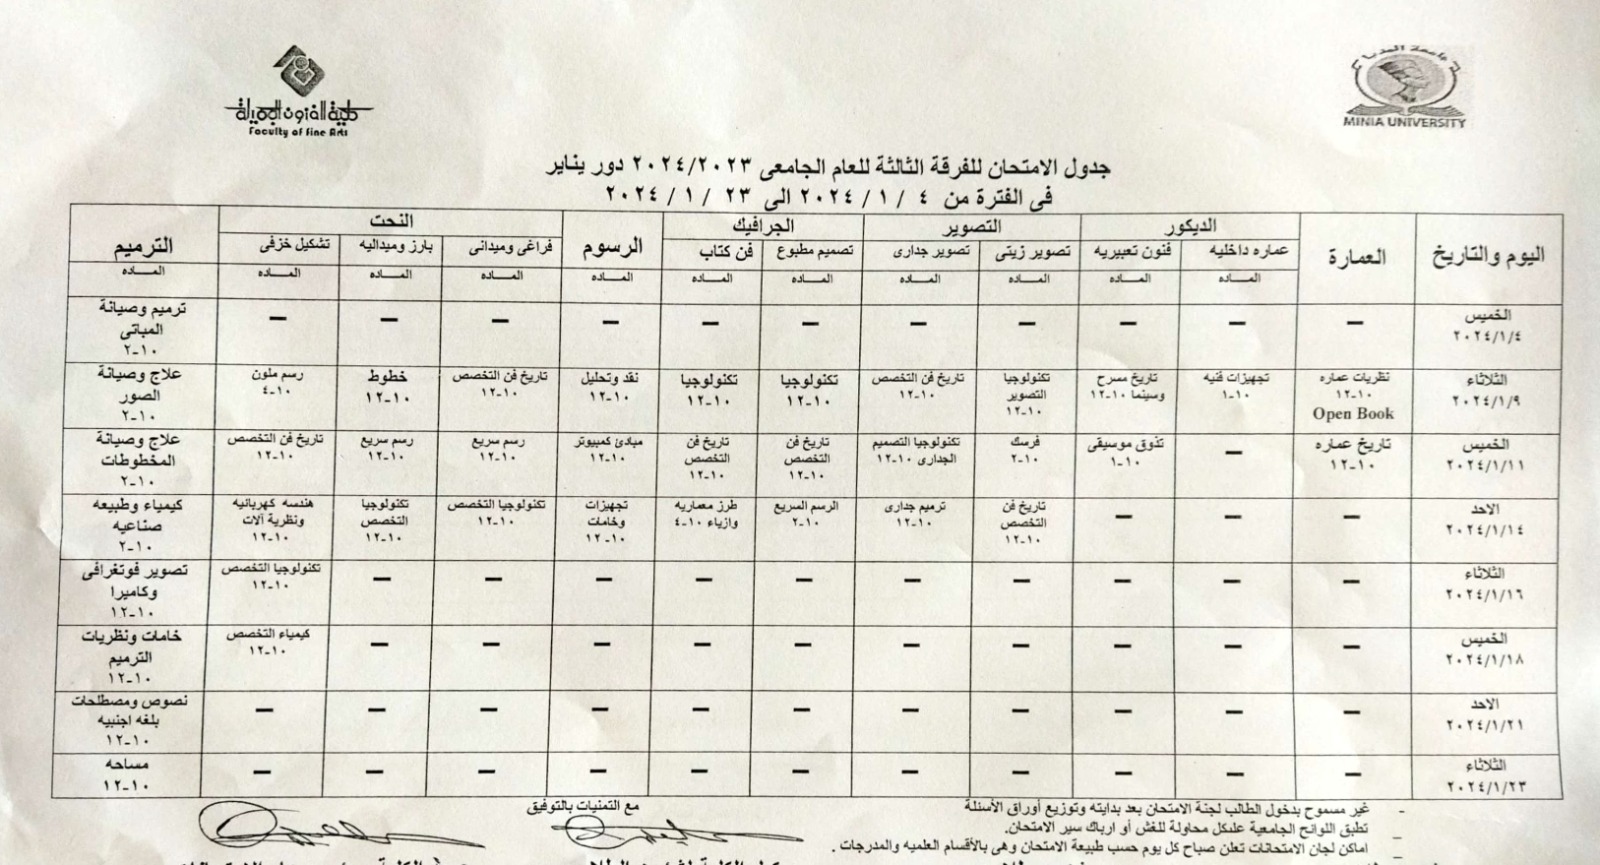 كلية الفنون الجميلة
Faculty of Fine Arts
جامعة المنيا
MINIA UNIVERSITY
جدول الامتحان للفرقة الثالثة للعام الجامعى ٢٠٢٤/٢٠٢٣ دور يناير
فى الفترة من ٤ / ١ / ٢٠٢٤ الى ٢٣ / ١ / ٢٠٢٤
اليوم والتاريخ | العمارة | الديكور | التصوير | الجرافيك | الرسوم | النحت | الترميم
عماره داخليه | فنون تعبيريه | تصوير زيتى | تصوير جدارى | تصميم مطبوع | فن كتاب | فراغى وميدانى | بارز وميداليه | تشكيل خزفى
المــاده | المــاده | المــاده | المــاده | المــاده | المــاده | المــاده | المــاده | المــاده | المــاده | المــاده
الخميس ٢٠٢٤/١/٤ | – | – | – | – | – | – | – | – | – | – | – | ترميم وصيانة المبانى ١٠-٢
الثلاثاء ٢٠٢٤/١/٩ | نظريات عماره ١٠-١٢ Open Book | تجهيزات فنيه ١٠-١ | تاريخ مسرح وسينما ١٠-١٢ | تكنولوجيا التصوير ١٠-١٢ | تاريخ فن التخصص ١٠-١٢ | تكنولوجيا ١٠-١٢ | تكنولوجيا ١٠-١٢ | نقد وتحليل ١٠-١٢ | تاريخ فن التخصص ١٠-١٢ | خطوط ١٠-١٢ | رسم ملون ١٠-٤ | علاج وصيانة الصور ١٠-٢
الخميس ٢٠٢٤/١/١١ | تاريخ عماره ١٠-١٢ | – | تذوق موسيقى ١٠-١ | فرسك ١٠-٢ | تكنولوجيا التصميم الجدارى ١٠-١٢ | تاريخ فن التخصص ١٠-١٢ | تاريخ فن التخصص ١٠-١٢ | مبادئ كمبيوتر ١٠-١٢ | رسم سريع ١٠-١٢ | رسم سريع ١٠-١٢ | تاريخ فن التخصص ١٠-١٢ | علاج وصيانة المخطوطات ١٠-٢
الاحد ٢٠٢٤/١/١٤ | – | – | – | تاريخ فن التخصص ١٠-١٢ | ترميم جدارى ١٠-١٢ | الرسم السريع ١٠-٢ | طرز معماريه وازياء ١٠-٤ | تجهيزات وخامات ١٠-١٢ | تكنولوجيا التخصص ١٠-١٢ | تكنولوجيا التخصص ١٠-١٢ | هندسه كهربائيه ونظرية آلات ١٠-١٢ | كيمياء وطبيعه صناعيه ١٠-٢
الثلاثاء ٢٠٢٤/١/١٦ | – | – | – | – | – | – | – | – | – | – | تكنولوجيا التخصص ١٠-١٢ | تصوير فوتغرافى وكاميرا ١٠-١٢
الخميس ٢٠٢٤/١/١٨ | – | – | – | – | – | – | – | – | – | – | كيمياء التخصص ١٠-١٢ | خامات ونظريات الترميم ١٠-١٢
الاحد ٢٠٢٤/١/٢١ | – | – | – | – | – | – | – | – | – | – | – | نصوص ومصطلحات بلغه اجنبيه ١٠-١٢
الثلاثاء ٢٠٢٤/١/٢٣ | – | – | – | – | – | – | – | – | – | – | – | مساحه ١٠-١٢
- غير مسموح بدخول الطالب لجنة الامتحان بعد بدايته وتوزيع أوراق الأسئلة
مع التمنيات بالتوفيق
- تطبق اللوائح الجامعية علىكل محاولة للغش أو ارباك سير الامتحان.
- اماكن لجان الامتحانات تعلن صباح كل يوم حسب طبيعة الامتحان وهى بالأقسام العلميه والمدرجات .